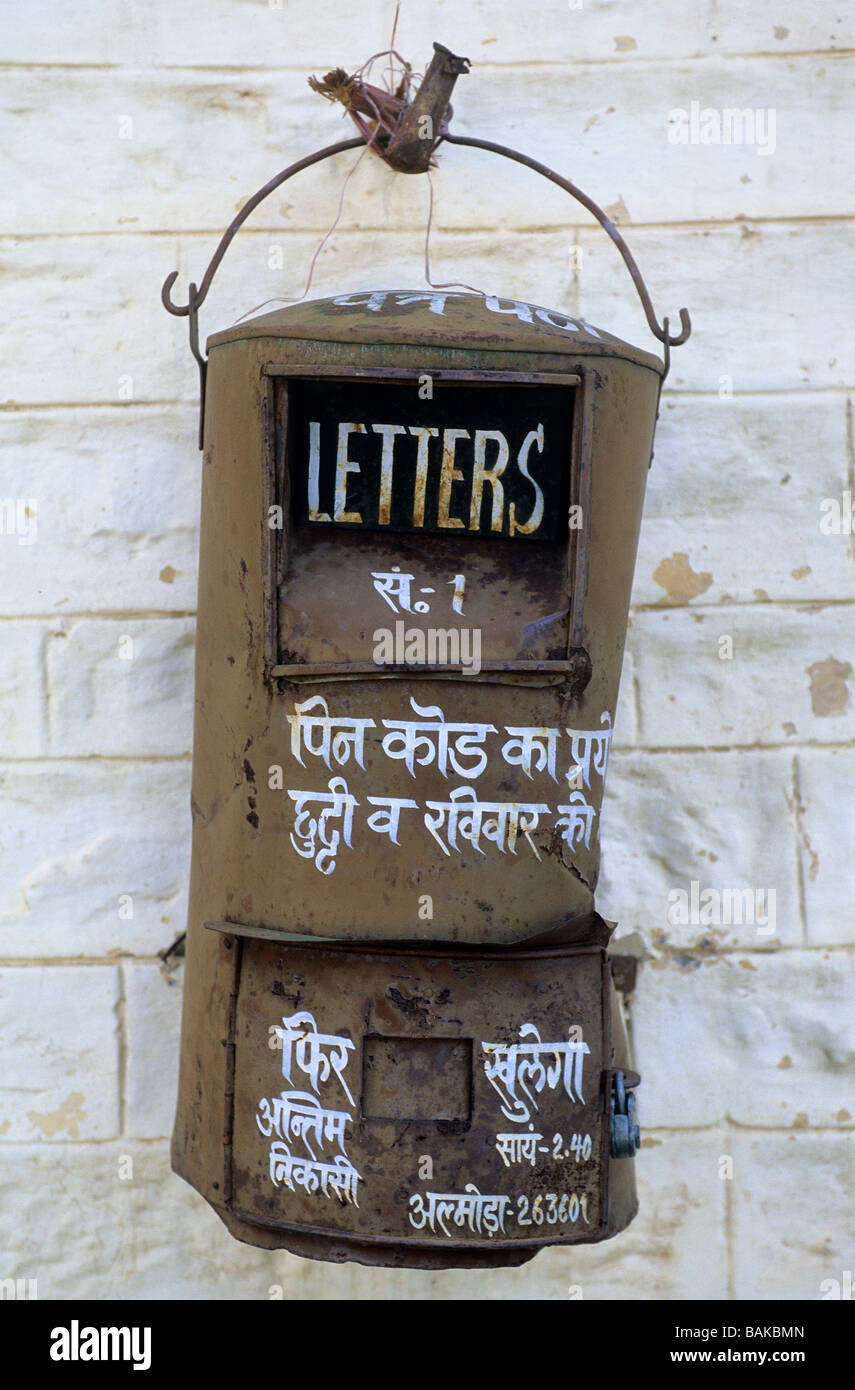 पत्र
LETTERS
सं॰-1
पिन कोड का
छुट्टी व रविवार की
फिर खुलेगा
अन्तिम निकासी सायं-2.40
अल्मोड़ा-263601
alamy
Image ID: BAKBMN
www.alamy.com